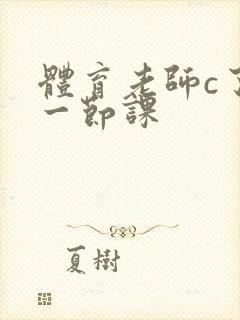 體育老師c了
一節課
夏樹